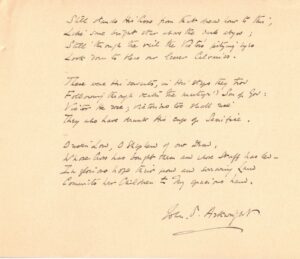 Still stands His Cross from that dread hour to this,
Like some bright star above the dark abyss;
Still, through the veil the Victor's pitying eyes
Look down to bless our lesser Calvaries.
These were His servants, in His steps they trod
Following through death the martyr'd Son of God:
Victor He rose; victorious too shall rise
They who have drunk His cup of Sacrifice.
O risen Lord, O Shepherd of our Dead,
Whose Cross has bought them and whose Staff has led—
In glorious hope their proud and sorrowing Land
Commits her Children to Thy gracious hand.
John S. Arkwright